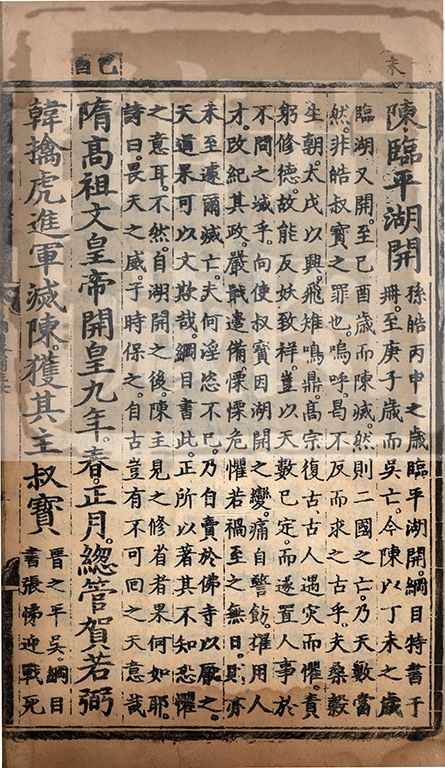 未
己酉
陳臨平湖開
孫皓丙申之歲臨平湖開。綱目特書于
冊。至庚子歲而吳亡。今陳以丁未之歲
臨湖又開。至己酉歲而陳滅。然則二國之亡。乃天數當
然。非皓叔寶之罪也。嗚呼。曷不反而求之古乎。夫桑穀
生朝。太戊以興。飛雉鳴鼎。高宗復古。古人遇灾而懼。責
躬修德。故能反妖致祥。豈以天數已定。而遂置人事於
不問之域乎。向使叔寶因湖開之變。痛自警飭。擢用人
才。政紀其政。嚴戢邊備。慄慄危懼。若禍至之無日。則亦
未至遽爾滅亡。夫何淫恣不已。乃自賣於佛寺以厭之。
天道果可以文欺哉。綱目書此。正所以著其不知恐懼
之意耳。不然。自湖開之後。陳主見之修省者果何如耶。
詩曰。畏天之威。于時保之。自古豈有不可回之天意哉
隋高祖文皇帝開皇九年。春。正月。總管賀若弼
韓擒虎進軍滅陳。獲其主叔寶
晋之平吳。綱目
書張悌迎戰死